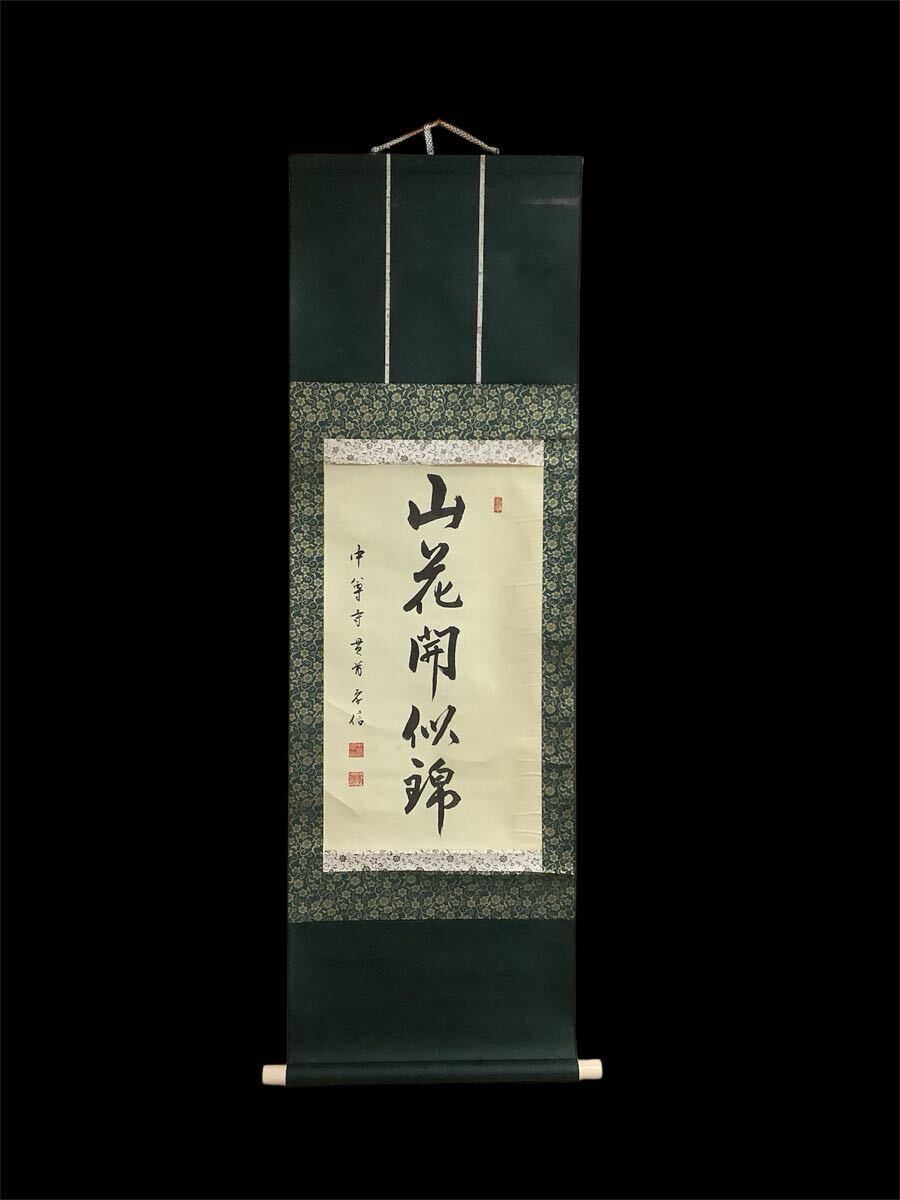 山花開似錦
中尊寺貫首孝信